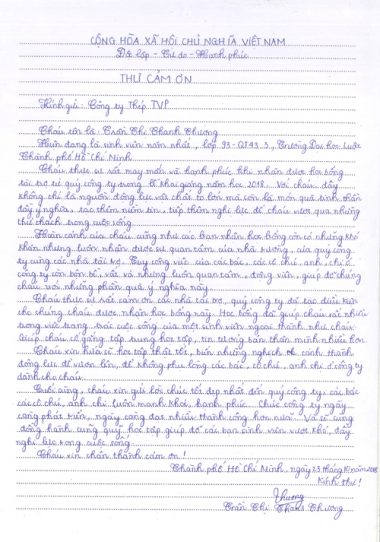 CỘNG HÒA XÃ HỘI CHỦ NGHĨA VIỆT NAM
Độc lập - Tự do - Hạnh phúc
THƯ CẢM ƠN
Kính gửi: Công ty Thép TVP
Cháu tên là: Trần Thị Thanh Thương
Hiện đang là sinh viên năm nhất, lớp 93-QT43.3, Trường Đại học Luật
Thành phố Hồ Chí Minh.
Cháu thực sự rất may mắn và hạnh phúc khi nhận được học bổng
tài trợ từ quý công ty trong lễ khai giảng năm học 2018. Với cháu, đây
không chỉ là nguồn động lực vật chất to lớn mà còn là món quà tinh thần
đầy ý nghĩa, tạo thêm niềm tin, tiếp thêm nghị lực để cháu vượt qua những
thử thách trong cuộc sống.
Hoàn cảnh của cháu cũng như các bạn nhận học bổng còn có những khó
khăn nhưng luôn nhận được sự quan tâm của nhà trường, của quý công
ty cùng các nhà tài trợ. Tuy công việc của các bác, các cô chú, anh, chị ở
công ty còn bận bề, vất vả nhưng luôn quan tâm, động viên, giúp đỡ chúng
cháu với những phần quà ý nghĩa này.
Cháu thực sự rất cảm ơn các nhà tài trợ, quý công ty đã tạo điều kiện
cho chúng cháu được nhận học bổng này. Học bổng đã giúp cháu rất nhiều
trong việc trang trải cuộc sống của một sinh viên ngoại thành như cháu.
Giúp cháu cố gắng tập trung học tập, tin tưởng bản thân mình nhiều hơn.
Cháu xin hứa sẽ học tập thật tốt, biến những nghịch cảnh thành
động lực để vươn lên, để không phụ lòng các bác, cô chú, anh chị ở công ty
dành cho cháu.
Cuối cùng, cháu xin gửi lời chúc tốt đẹp nhất đến quý công ty; các bác
các cô chú, anh chị luôn mạnh khỏe, hạnh phúc. Chúc công ty ngày
càng phát triển, ngày càng đạt nhiều thành công hơn nữa. Và sẽ cùng
đồng hành cùng quỹ học tập giúp đỡ các bạn sinh viên vượt khó, đầy
nghị lực trong cuộc sống.
Cháu xin chân thành cảm ơn!
Thành phố Hồ Chí Minh, ngày 23 tháng 10 năm 2018
Kính thư!
Thương
Trần Thị Thanh Thương